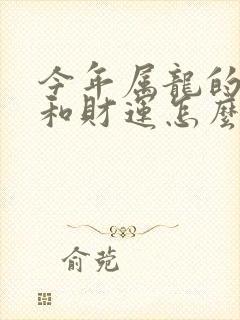 今年属龍的
和財運怎麼
俞菀